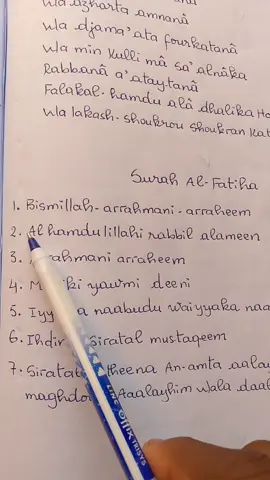 wa azharta amnanâ
wa djama'ata fourkatanâ
wa min kulli mâ sa'alnâka
Rabbanâ a'ataytanâ
Falakal-hamdu alâ dhalika
wa lakash-shoukrou shoukran
Surah Al-Fatiha
1. Bismillah-arrahmani-arraheem
2. Alhamdulillahi rabbil alameen
3. arraheem
4. yawmi deeni
5. naabudu waiyyaka
6. Ihdir Siratal mustaqeem
7. An-amta
wala